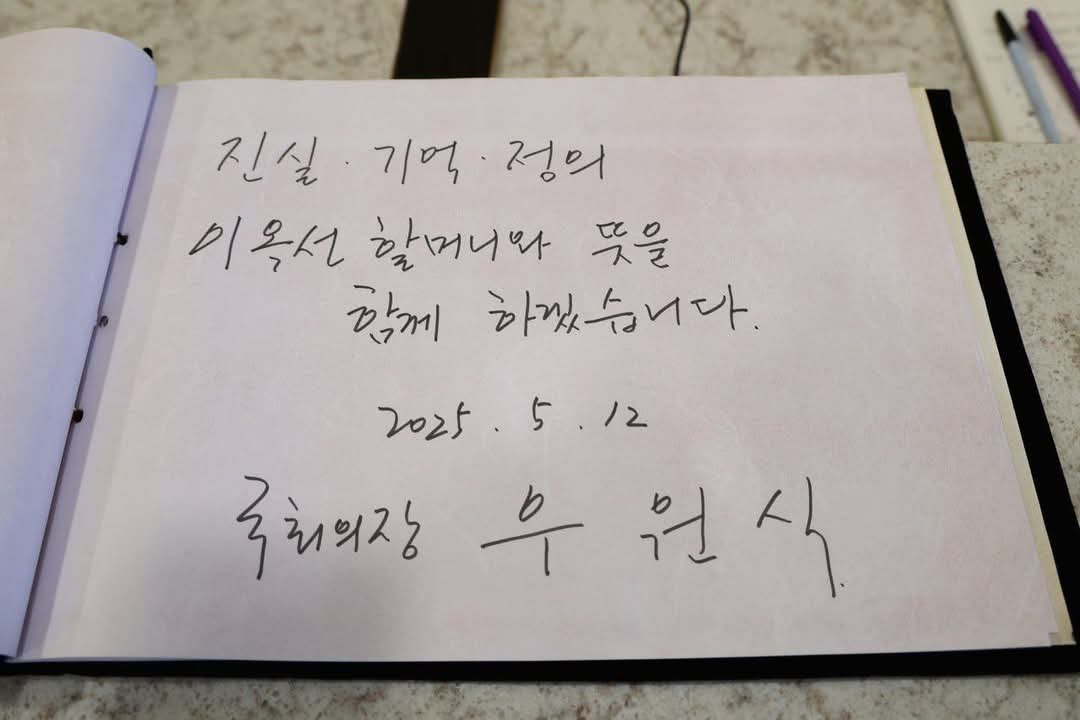 진실 · 기억 · 정의
이옥선 할머니와 뜻을
함께 하겠습니다.
2025. 5. 12
국회의장 우원식